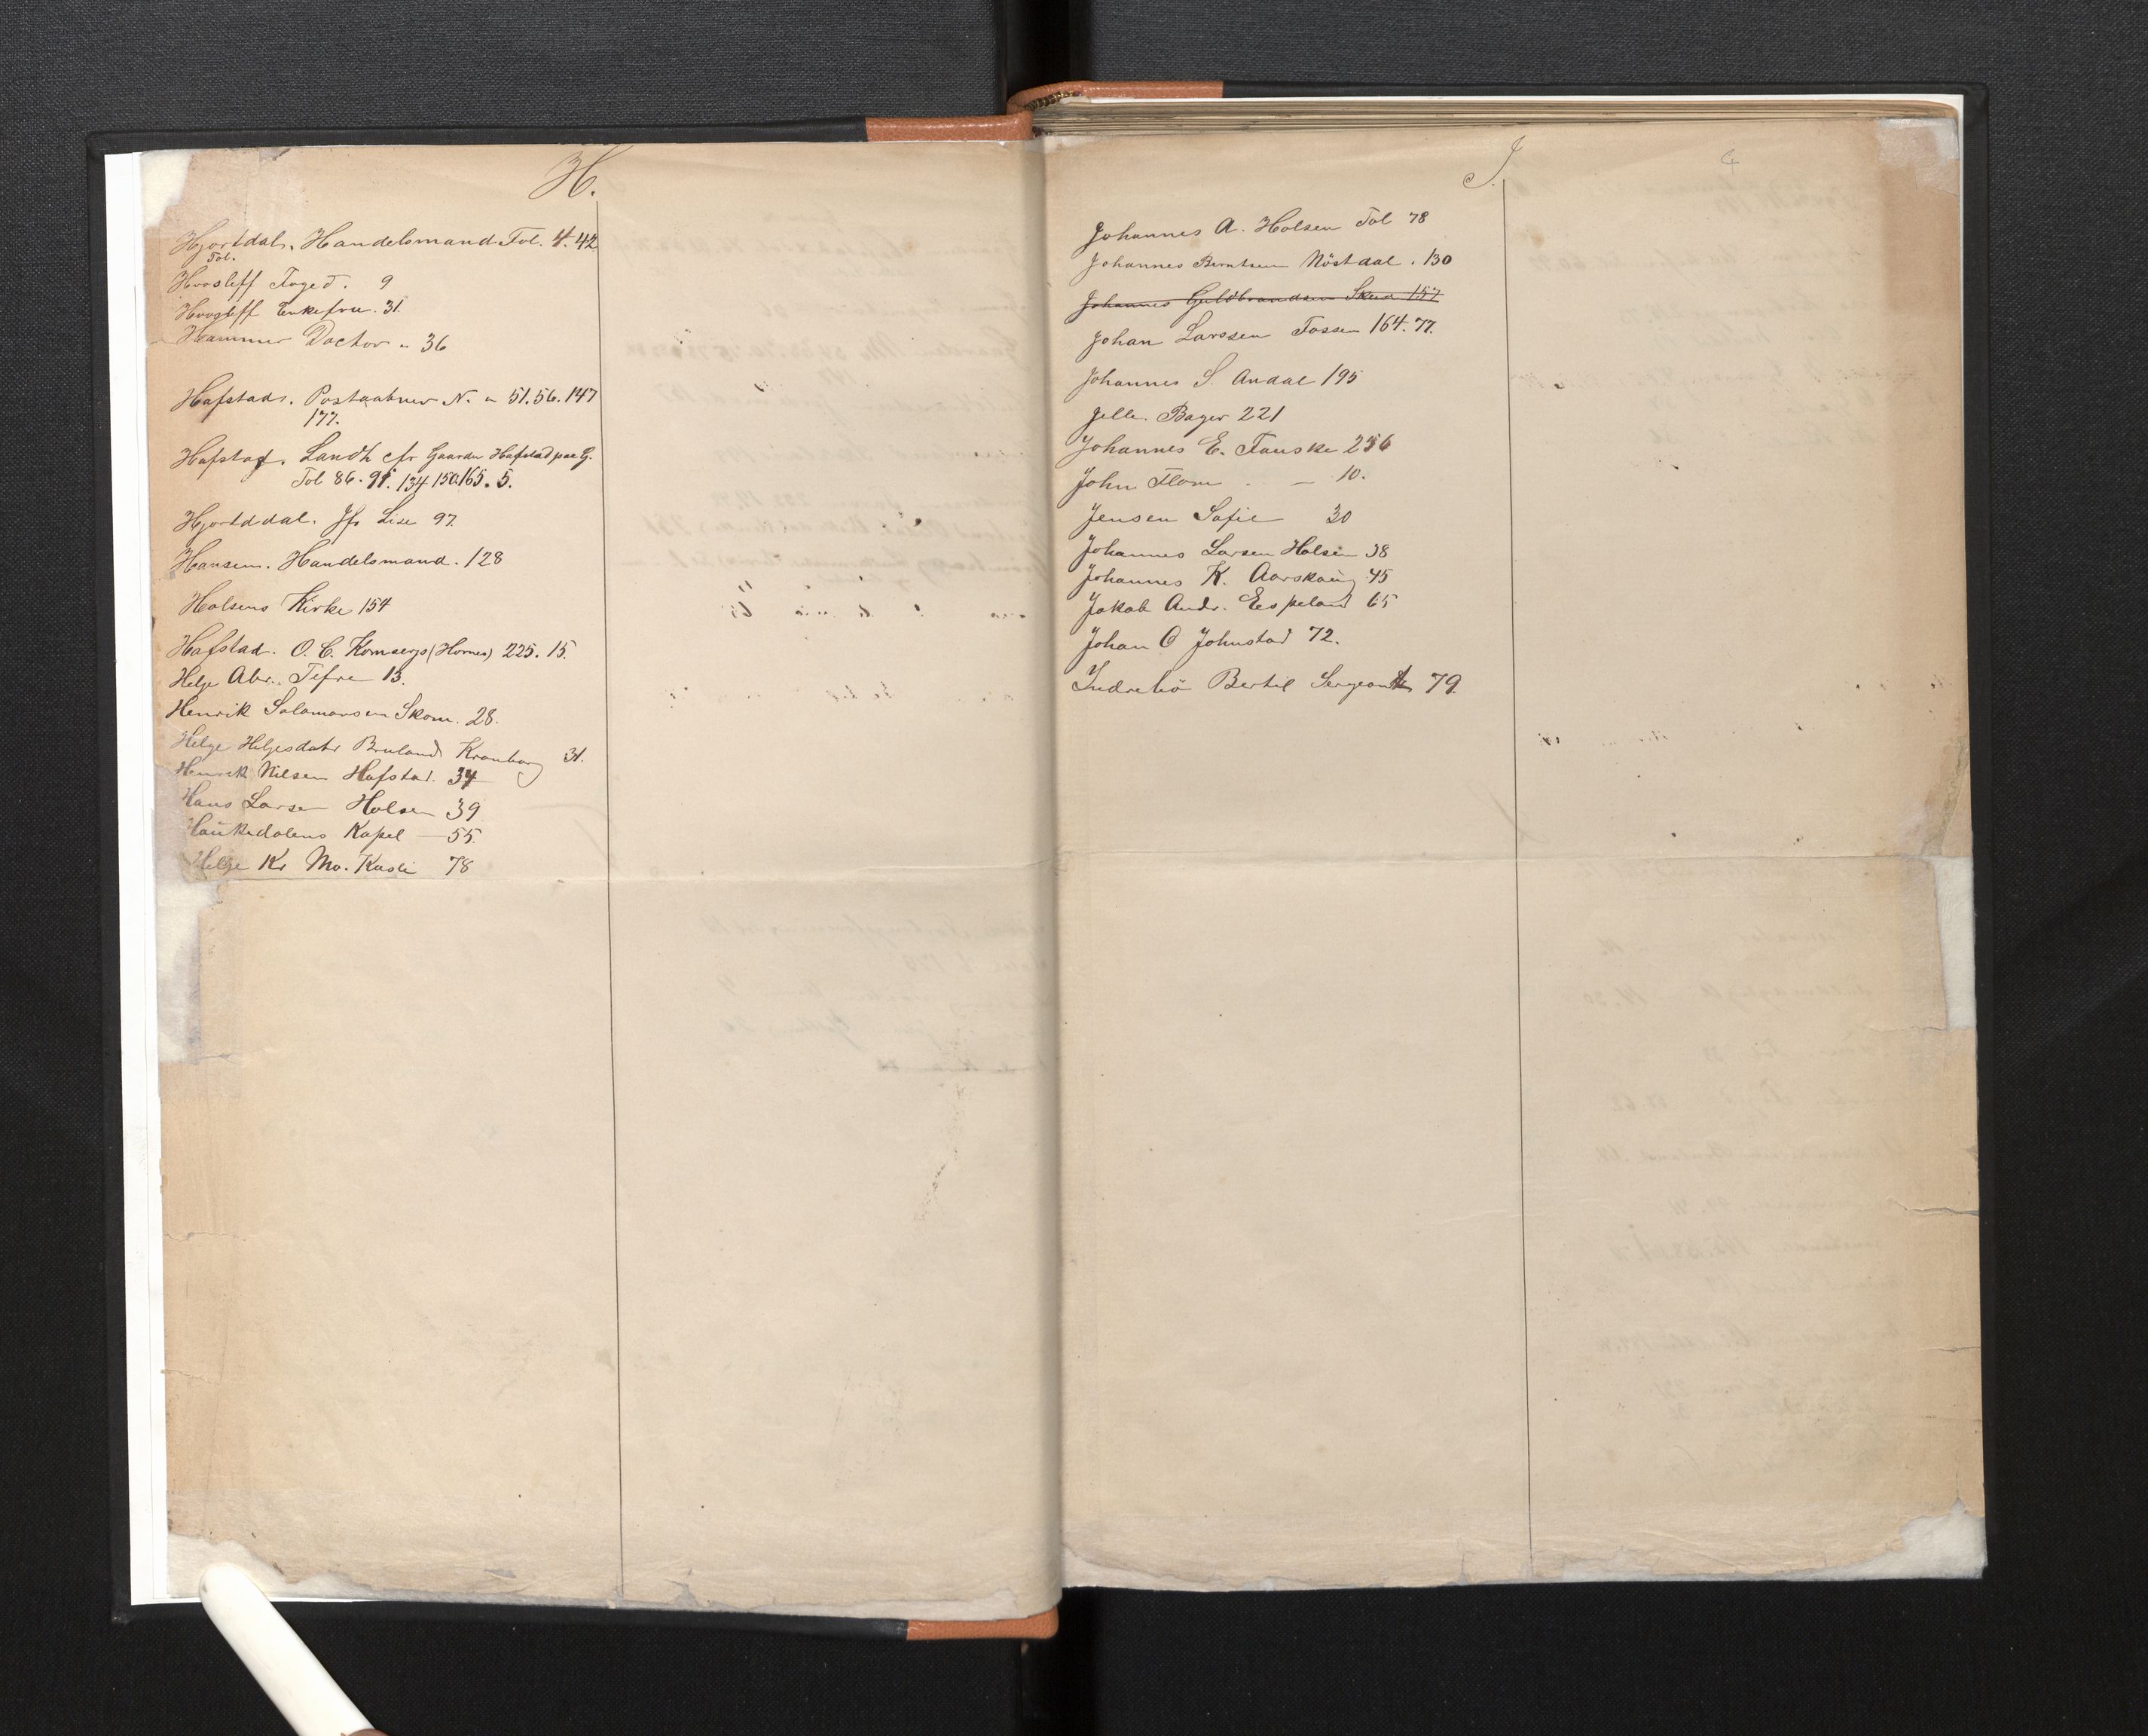 H.
Hjortdal, Handelsmand Fol. 4. 42
Fol.
Foged. 9
Enkefru. 31.
Hammer Doctor " 36
Hafstad. Postaabner N. " 51. 56. 147
177.
Hafstad. Landh cfr Gaarden Hafstad paa G.
Fol 86. 91. 134. 150. 165. 5.
Hjortddal. Jfr Lise 97.
Hansen. Handelsmand. 128
Holsens Kirke 154
Hafstad. O. C. (Hornes) 225. 15.
Helge Abr. Tefre 13.
Henrik Salamonsen Skom. 28.
Helge Helgesdatr Bruland Kronborg 31.
Henrik Nilsen Hafstad. 34
Hans Larsen Holsen 39
Haukedalens Kapel — 55.
Helge Kr Mo. 78
J.
4
Johannes A. Holsen Fol 78
Johannes Berntsen Nöstdal . 130
Johannes Guldbrandsen Skei 157
Johan Larssen Fossen 164. 77.
Johannes S. Andal 195
Jelle. Bager 221
Johannes E. Fauske 236
John Flom . — 10.
Jensen Sofie 30
Johannes Larsen Holsen 38
Johannes K. Aarskaug 45
Jakob Andr. Espeland 65
Johan O Johnstad 72.
Indrebö Bertil Sergeant 79.